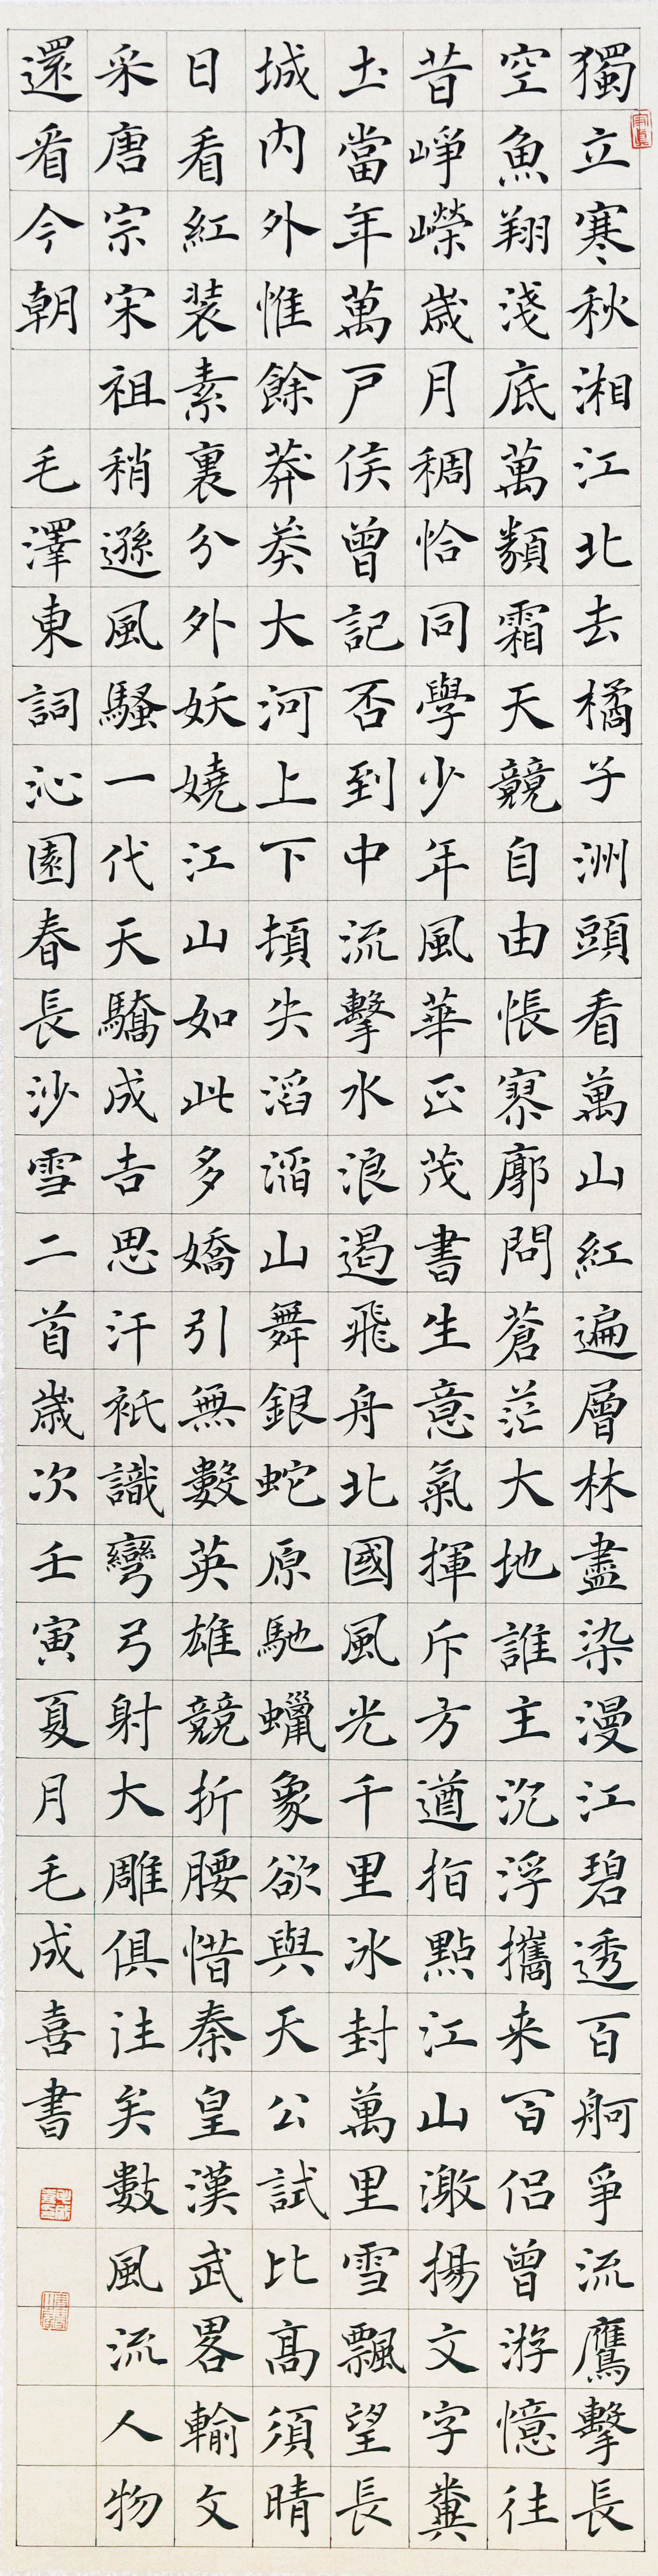 獨立寒秋湘江北去橘子洲頭看萬山紅遍層林盡染漫江碧透百舸爭流鷹擊長
空魚翔淺底萬類霜天競自由悵寥廓問蒼茫大地誰主沉浮攜来百侶曾游憶往
昔崢嶸歲月稠恰同學少年風華正茂書生意氣揮斥方遒指點江山激揚文字糞
土當年萬戶侯曾記否到中流擊水浪遏飛舟北國風光千里冰封萬里雪飄望長
城内外惟餘莽莽大河上下頓失滔滔山舞銀蛇原馳蠟象欲與天公試比高須晴
日看紅裝素裹分外妖嬈江山如此多嬌引無數英雄競折腰惜秦皇漢武畧輸文
采唐宗宋祖稍遜風騷一代天驕成吉思汗衹識彎弓射大雕俱往矣數風流人物
還看今朝 毛澤東詞沁園春長沙雪二首歲次壬寅夏月毛成喜書